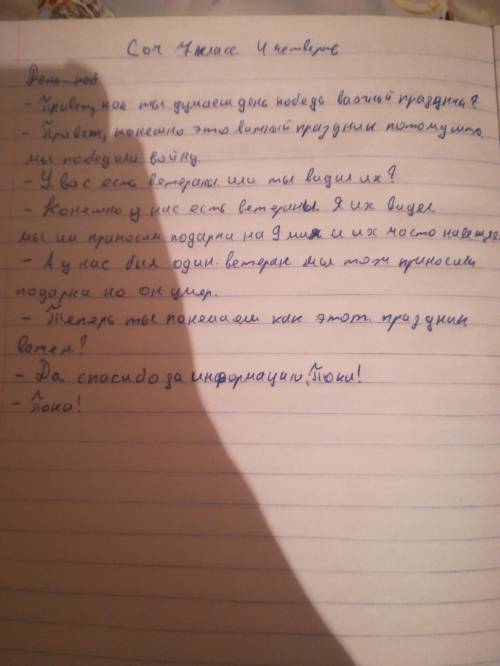 Соч 7 класс 4 четверть
День поб
- Привет, как ты думаеш день победы важный праздник?
- Привет, конечно это важный праздник потому что
мы победили войну.
- У вас есть ветераны или ты видил их?
- Конечно у нас есть ветераны. Я их видел
мы им приносим подарки на 9 мая и их часто
- А у нас был один ветеран мы тож приносили
подарка но он умер.
- Теперь ты понемаеш как этот праздник
важен?
- Да спасибо за информацию, Пока!
- Пока!